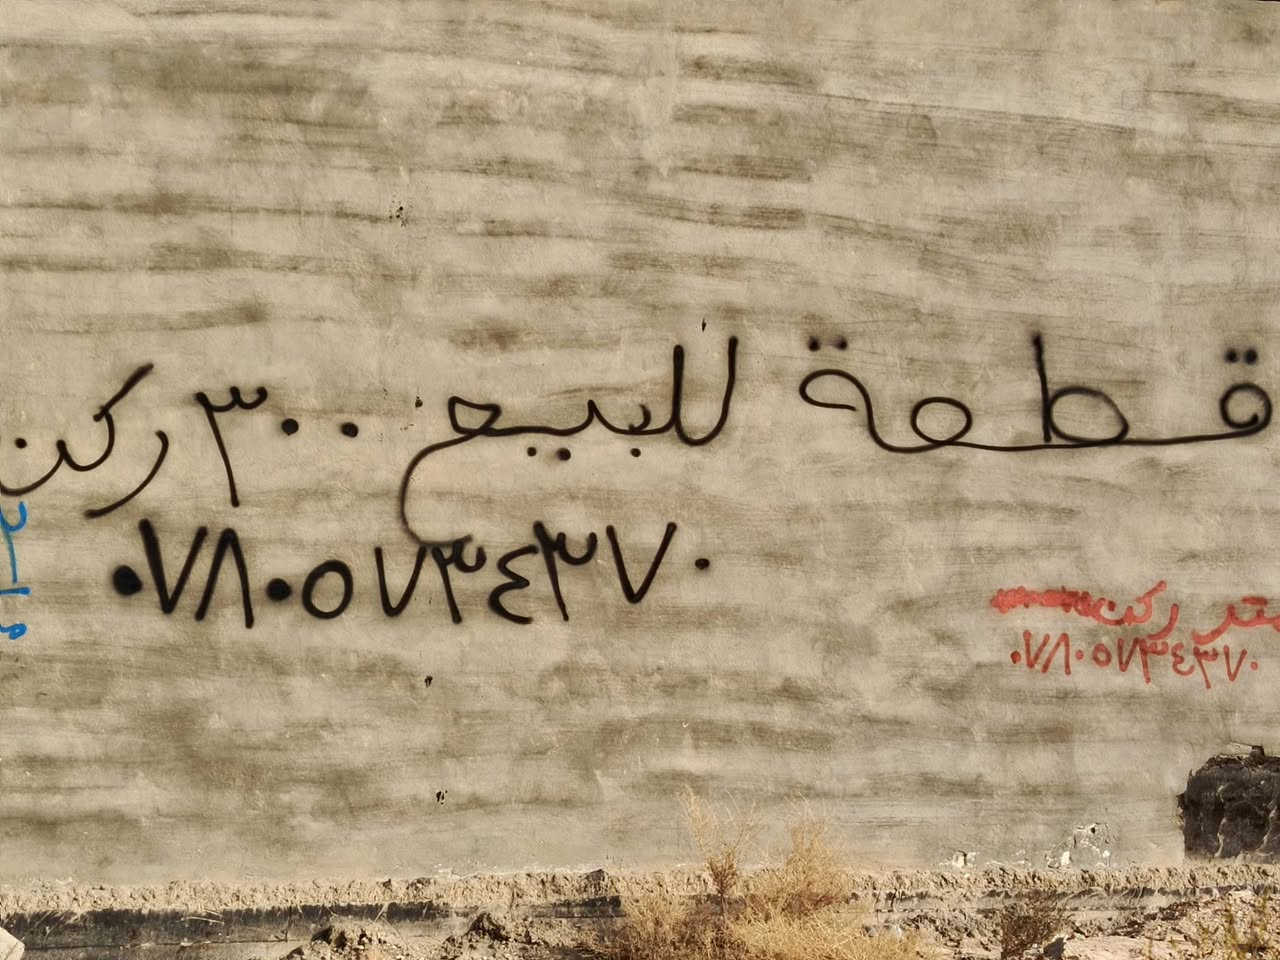 قطعة للبيع ٣٠٠ ركن
٠٧٨٠٥٧٣٤٣٧٠
ركن
٠٧٨٠٥٧٣٤٣٧٠